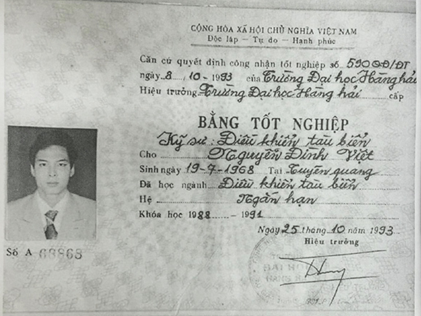 CỘNG HÒA XÃ HỘI CHỦ NGHĨA VIỆT NAM
Độc lập - Tự do - Hạnh phúc
Căn cứ quyết định công nhận tốt nghiệp số 590QĐ/ĐT
ngày 8. 10 - 1993 của Trường Đại học Hàng hải
Hiệu trưởng Trường Đại học Hàng hải cấp
BẰNG TỐT NGHIỆP
Kỹ sư : Điều khiển tàu biển
Cho Nguyễn Đình Việt
Sinh ngày 19-4-1968 Tại Tuyên quang
Đã học ngành Điều khiển tàu biển
Hệ Ngắn hạn
Khóa học 1988 - 1991
Ngày 25 tháng 10 năm 1993
Hiệu trưởng
Số A